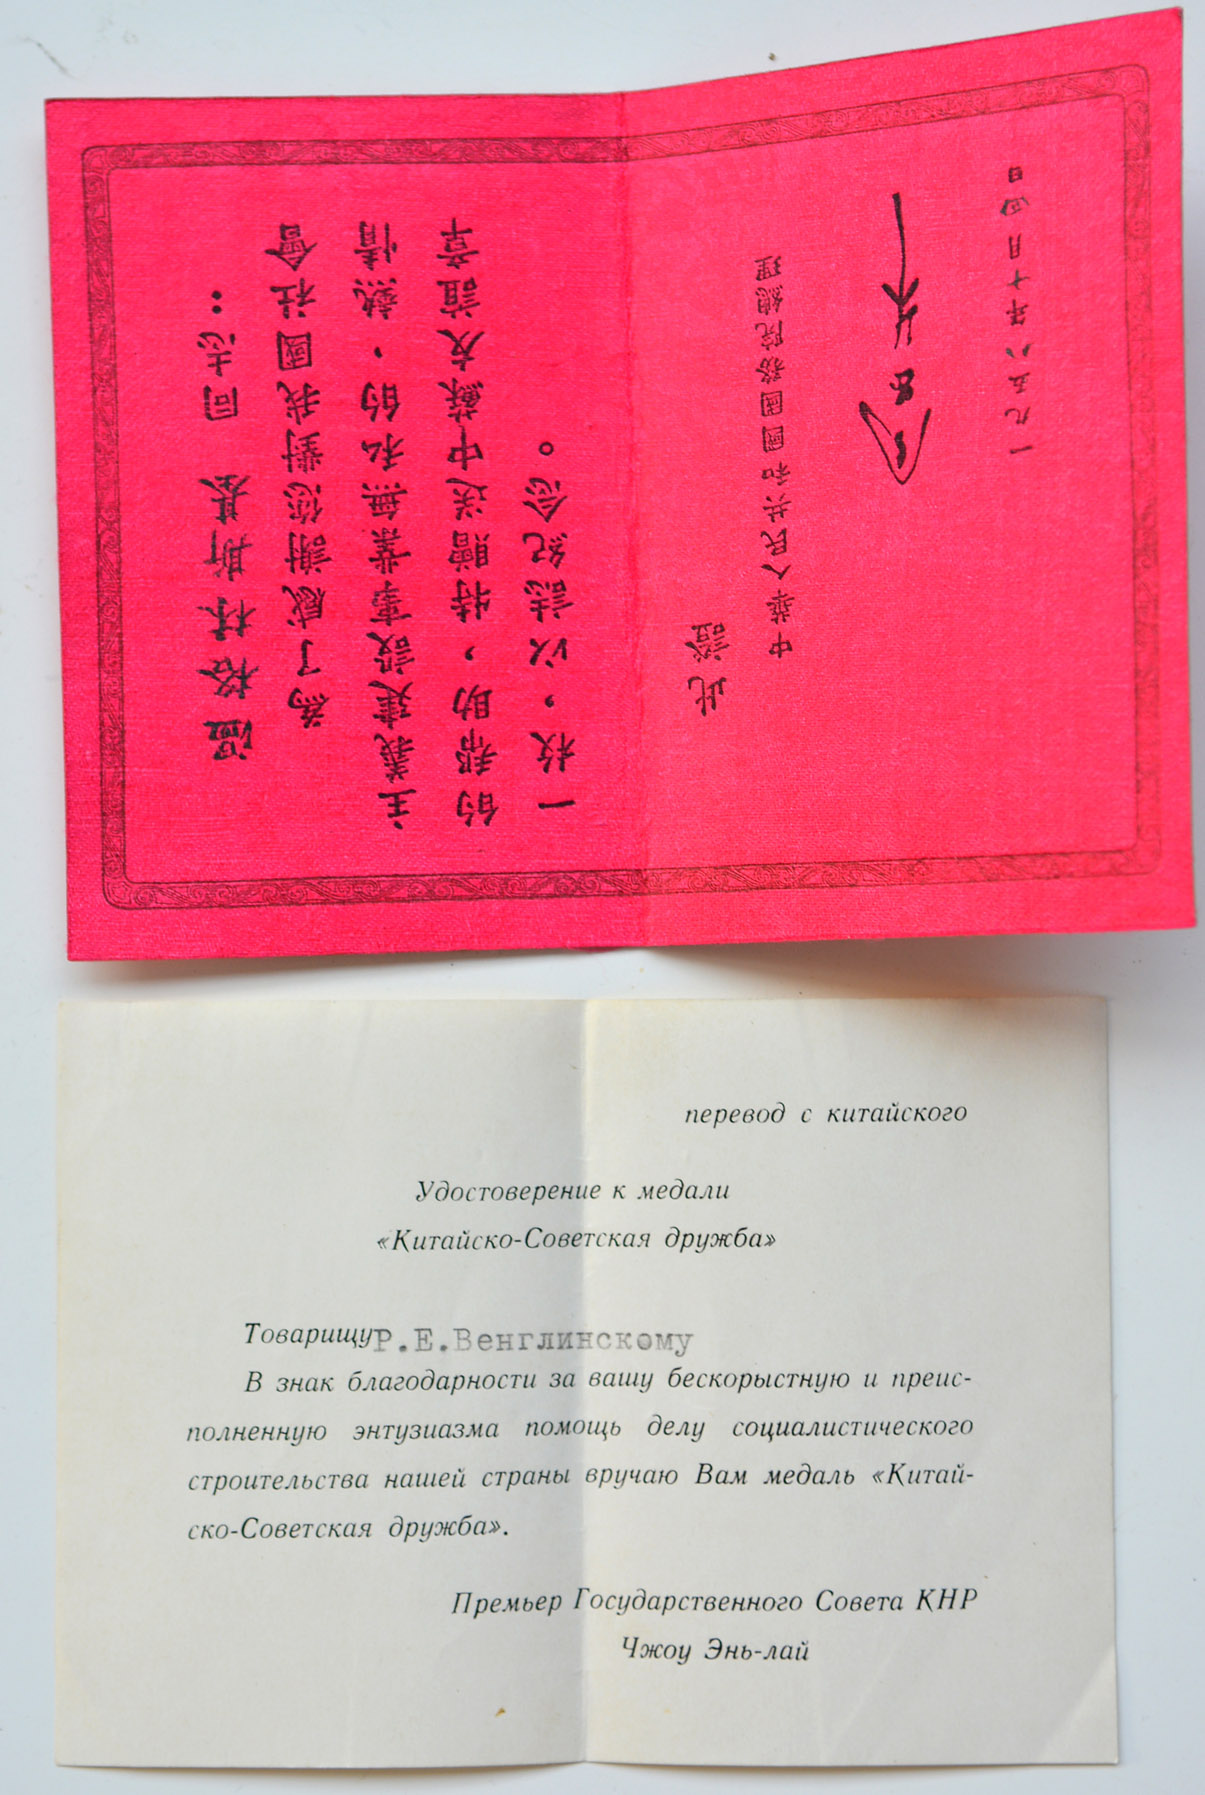 溫格林斯基 同志：
為了感謝您對我國社會
主義建設事業無私的、熱情
的幫助，特贈送中蘇友誼章
一枚，以誌紀念。
此證
中華人民共和國國務院總理
周恩来
一九五八年十月四日
перевод с китайского
Удостоверение к медали
«Китайско-Советская дружба»
Товарищу Р.Е.Венглинскому
В знак благодарности за вашу бескорыстную и преис-
полненную энтузиазма помощь делу социалистического
строительства нашей страны вручаю Вам медаль «Китай-
ско-Советская дружба».
Премьер Государственного Совета КНР
Чжоу Энь-лай